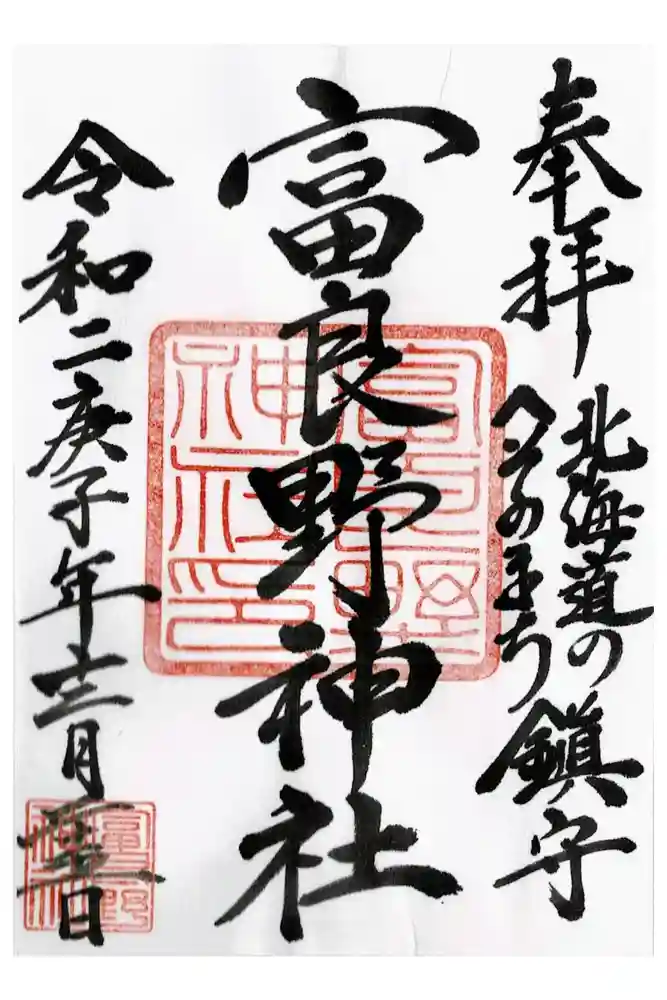 奉拝
北海道の
へそのまち
鎮守
富良野神社
富良野神社印
令和二庚子年十二月 日
富良野神社